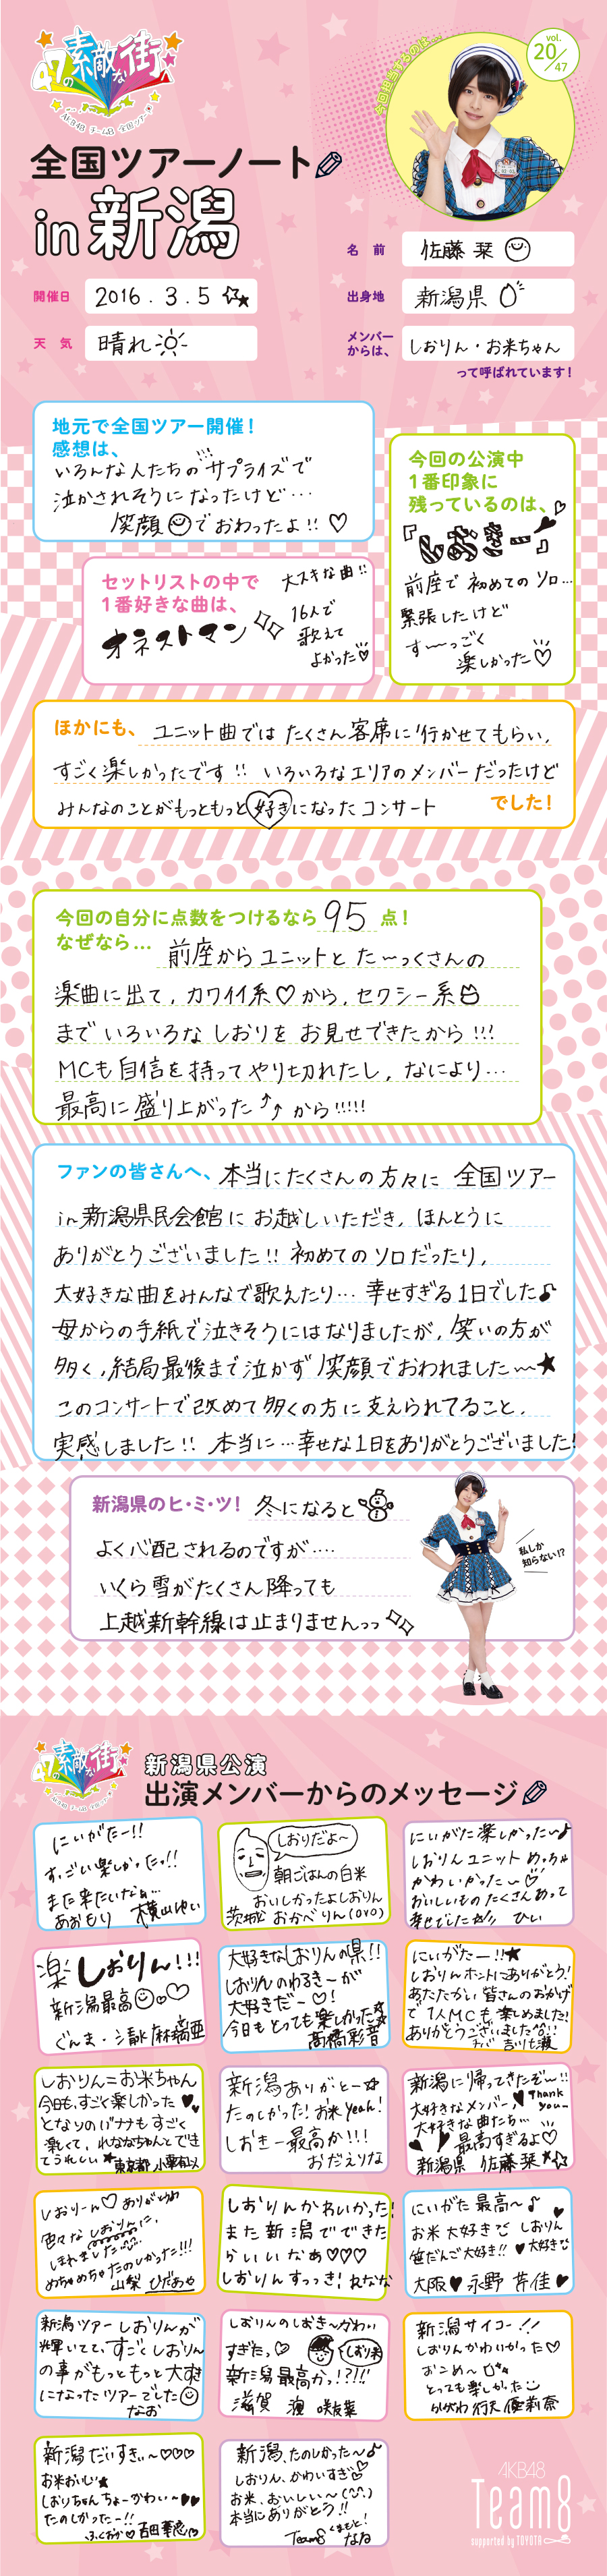 47の素敵な街へ
AKB48 チーム8 全国ツアー
全国ツアーノート
in 新潟
今回担当するのは…
vol.
20/47
名 前 佐藤 栞
開催日 2016.3.5
出身地 新潟県
天 気 晴れ
メンバー
からは、 しおりん・お米ちゃん
って呼ばれています!
地元で全国ツアー開催!
感想は、
いろんな人たちのサプライズで
泣かされそうになったけど…
笑顔でおわったよ!!♡
今回の公演中
1番印象に
残っているのは、
『しおきー』
前座で初めてのソロ…
緊張したけど
す〜っごく
楽しかった♡
セットリストの中で
1番好きな曲は、
オネストマン
大スキな曲!!
16人で
歌えて
よかった♡
ほかにも、ユニット曲ではたくさん客席に行かせてもらい,
すごく楽しかったです!! いろいろなエリアのメンバーだったけど
みんなのことがもっともっと好きになったコンサート でした!
今回の自分に点数をつけるなら 95 点!
なぜなら… 前座からユニットとた〜っくさんの
楽曲に出て, カワイイ系♡から, セクシー系
までいろいろなしおりをお見せできたから!!!
MCも自信を持ってやり切れたし, なにより…
最高に盛り上がった↑↑から!!!!!
ファンの皆さんへ、本当にたくさんの方々に 全国ツアー
in新潟県民会館にお越しいただき, ほんとうに
ありがとうございました!! 初めてのソロだったり,
大好きな曲をみんなで歌えたり… 幸せすぎる1日でした♪
母からの手紙で泣きそうにはなりましたが, 笑いの方が
多く, 結局最後まで泣かず笑顔でおわれました〜★
このコンサートで改めて多くの方に支えられてること,
実感しました!! 本当に…幸せな1日をありがとうございました!
新潟県のヒ・ミ・ツ! 冬になると
よく心配されるのですが….
いくら雪がたくさん降っても
上越新幹線は止まりませんっっ
私しか
知らない!?
47の素敵な街へ
AKB48 チーム8 全国ツアー
新潟県公演
出演メンバーからのメッセージ
にいがたー!!
すっごい楽しかったっ!!
また来たいなぁ…
あおもり 横山ゆい
しおりだよ〜
朝ごはんの白米
おいしかったよしおりん
茨城 おかべりん(OVO)
にいがた楽しかった〜♪
しおりんユニットめっちゃ
かわいかった〜♡
おいしいものたくさんあって
幸せでした!! ひぃ
楽しおりん!!!
新潟最高♡
ぐんま・清水麻璃亜
大好きなしおりんの県!!
しおりんのわるきーが
大好きだー♡!
今日もとっても楽しかった☆
髙橋彩音
にいがたー!!★
しおりんホントにありがとう!
あたたかい皆さんのおかげ
で1人MCも楽しめました!
ありがとうございました
ちば 吉川七瀬
しおりん=お米ちゃん
今日も,すごく楽しかった♥
となりのバナナもすごく
楽しくて, れななちゃんとでき
てうれしい★ 東京都 小栗有以
新潟ありがとー☆
たのしかった!お米yeah!
しおきー最高か!!!
おだえりな
新潟に帰ってきたぞ〜!!
大好きなメンバー,♥Thank you〜
大好きな曲たち…
最高すぎるよ♡
新潟県 佐藤栞★☆
しおりーん♡ありがゆわ
色々なしおりんに,
ほれました
めちゃめちゃたのしかった!!!
山梨 ひだあや
しおりんかわいかった!
また新潟でできた
らいいなぁ♡♡♡
しおりんすっっき! れなな
にいがた最高〜♪
お米大好き しおりん
笹だんご大好き!! ♥大好き
大阪♥永野芹佳♥
新潟ツアーしおりんが
輝いてて, すごくしおりん
の事がもっともっと大すき
になったツアーでした
なお
しおりんのしおき〜かわい
すぎたっ♡ しおり米
新潟最高かっ!?!!!
滋賀 濵 咲友菜
新潟サイコー!!
しおりんかわいかった♡
おこめ〜
とっても楽しかった
かがわ 行天優莉奈
新潟だいすきぃ〜♡♡♡
お米おいしい★
しおりちゃんちょーかわい〜♥♥
たのしかったー!!
ふくおか♡吉田華恋
新潟、たのしかった〜♪
しおりん、かわいすぎ♡
お米、おいしい〜
本当にありがとう!!
Team8くまもと!
なる
AKB48
Team8
supported by TOYOTA